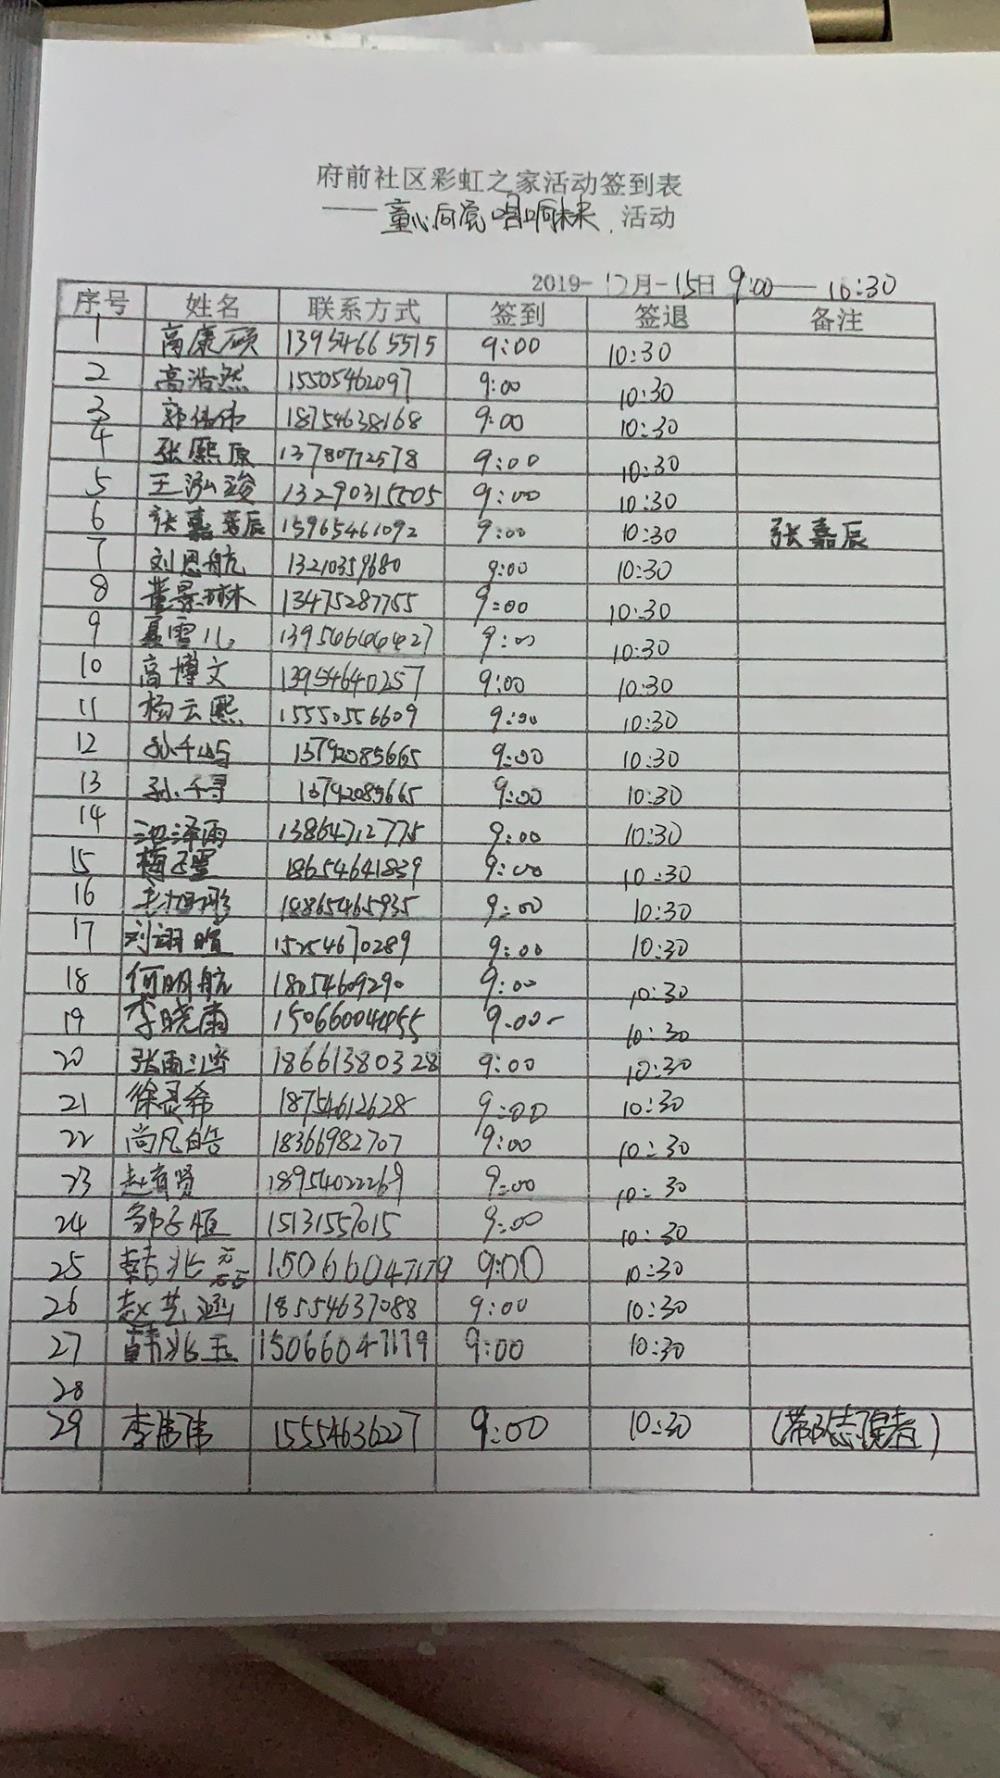 府前社区彩虹之家活动签到表
——童心向党 唱响未来 活动
2019-12月-15日 9:00——10:30
序号 姓名 联系方式 签到 签退 备注
1 高康硕 13954665515 9:00 10:30
2 高浩然 15505462097 9:00 10:30
3 郭伟伟 18754638168 9:00 10:30
4 张熙原 13780772578 9:00 10:30
5 王泓骏 13290315505 9:00 10:30
6 张嘉辰 15965461092 9:00 10:30 张嘉辰
7 刘恩航 13210359680 9:00 10:30
8 董景琳 13475287755 9:00 10:30
9 聂雪儿 13954644427 9:00 10:30
10 高博文 13954640257 9:00 10:30
11 杨云熙 15550556609 9:00 10:30
12 孙千 13792085665 9:00 10:30
13 孙千寻 13792085665 9:00 10:30
14 泽雨 13864712775 9:00 10:30
15 梅 18654641839 9:00 10:30
16 18865465935 9:00 10:30
17 刘翊暄 15254670289 9:00 10:30
18 何明航 18054609290 9:00 10:30
19 李晓雨 9:00 10:30
20 张雨涵 18661380328 9:00 10:30
21 徐灵希 18754612628 9:00 10:30
22 尚凡皓 18366982707 9:00 10:30
23 赵育贤 18954022269 9:00 10:30
24 邹子恒 15131557015 9:00 10:30
25 韩兆元 15066047179 9:00 10:30
26 赵艺涵 18554637088 9:00 10:30
27 韩兆玉 15066047179 9:00 10:30
28
29 李伟伟 15554636227 9:00 10:30 (带队志愿者)